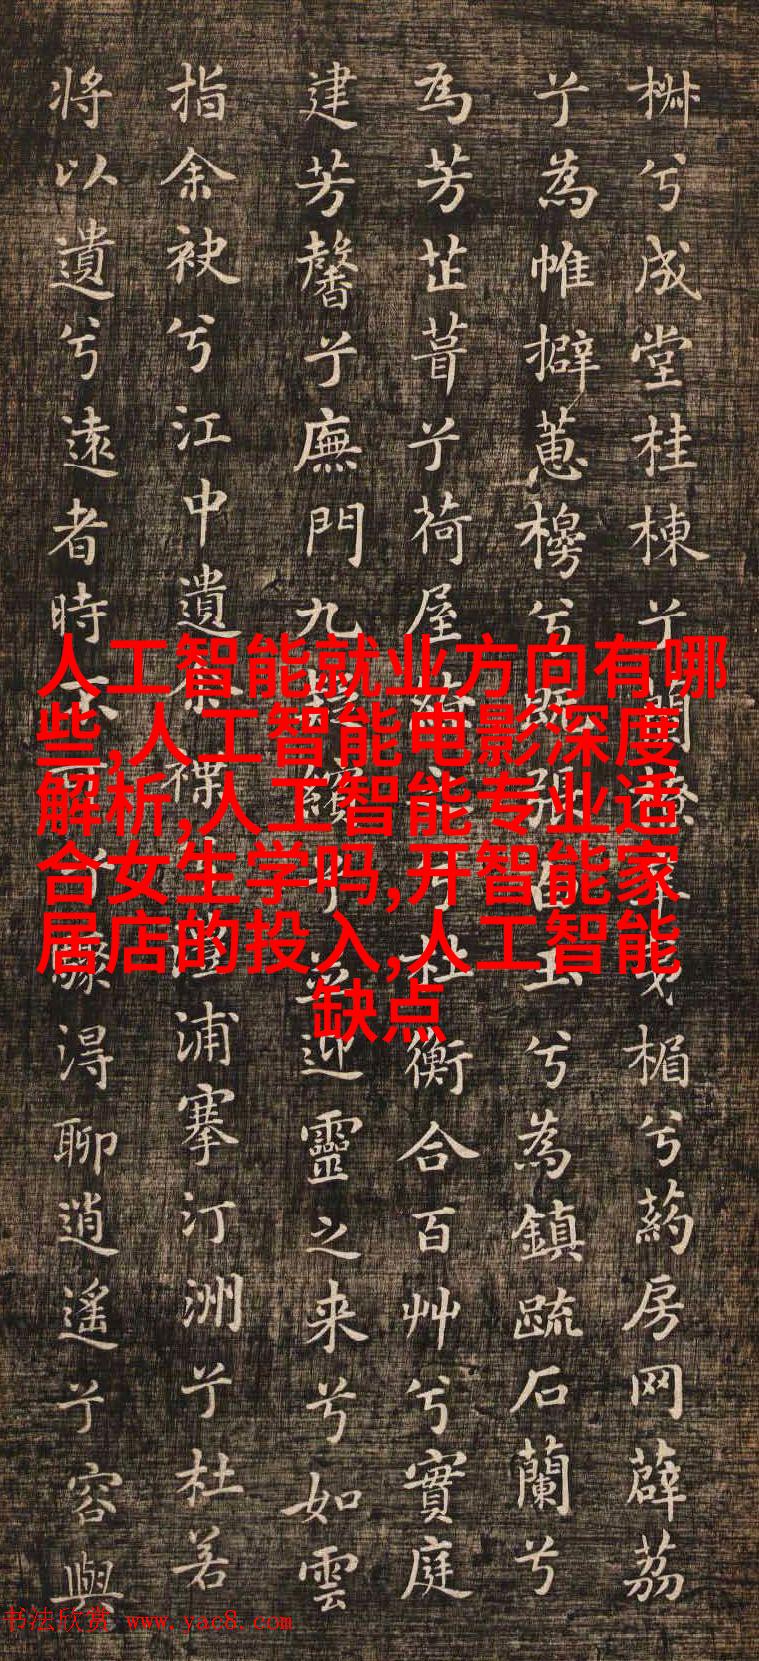 椒兮成堂桂棟兮蘭橑辛夷楣兮葯房网薜荔
兮為帷擗蕙櫋兮既張白玉兮為鎮疏石蘭兮
為芳芷葺兮荷屋繚之兮杜衡合百艸兮實庭
建芳馨兮廡門九嶷繽兮並迎靈之来兮如雲
指余袂兮江中遺余褋兮醴浦搴汀洲兮杜若
將以遺兮遠者時不可兮驟得聊逍遙兮容與
人工智能就业方向有哪
些,人工智能电影深度
解析,人工智能专业适
合女生学吗,开智能家
居店的投入,人工智能
缺点
书法欣赏 www.yac8.com